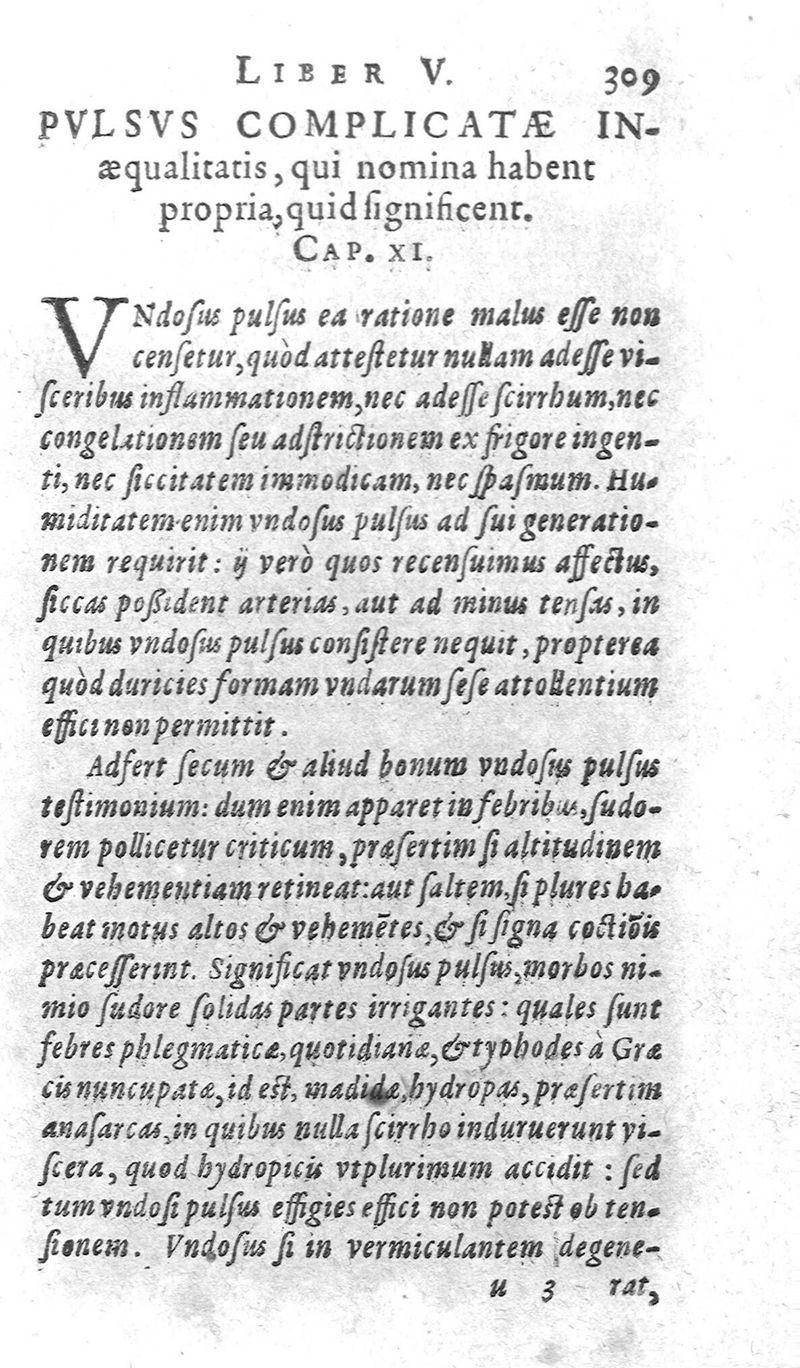 LIBER V. 309
PVLSVS COMPLICATÆ IN-
æqualitatis, qui nomina habent
propria, quid significent.
CAP. XI.
VNdosus pulsus ea ratione malus esse non
censetur, quòd attestetur nullam adesse vi-
sceribus inflammationem, nec adesse scirrhum, nec
congelationem seu adstrictionem ex frigore ingen-
ti, nec siccitatem immodicam, nec spasmum. Hu-
miditatem enim vndosus pulsus ad sui generatio-
nem requirit: ij verò quos recensuimus affectus,
siccas possident arterias, aut ad minus tensas, in
quibus vndosus pulsus consistere nequit, propterea
quòd duricies formam vndarum sese attollentium
effici non permittit.
Adfert secum & aliud bonum vndosus pulsus
testimonium: dum enim apparet in febribus, sudo-
rem pollicetur criticum, præsertim si altitudinem
& vehementiam retineat: aut saltem, si plures ha-
beat motus altos & vehemētes, & si signa coctiōis
præcesserint. Significat vndosus pulsus, morbos ni-
mio sudore solidas partes irrigantes: quales sunt
febres phlegmaticæ, quotidianæ, & typhodes à Græ
cis nuncupatæ, id est, madidæ, hydropas, præsertim
anasarcas, in quibus nulla scirrho induruerunt vi-
scera, quod hydropicis vtplurimum accidit: sed
tum vndosi pulsus effigies effici non potest ob ten-
sionem. Vndosus si in vermiculantem degene-
u 3 rat,